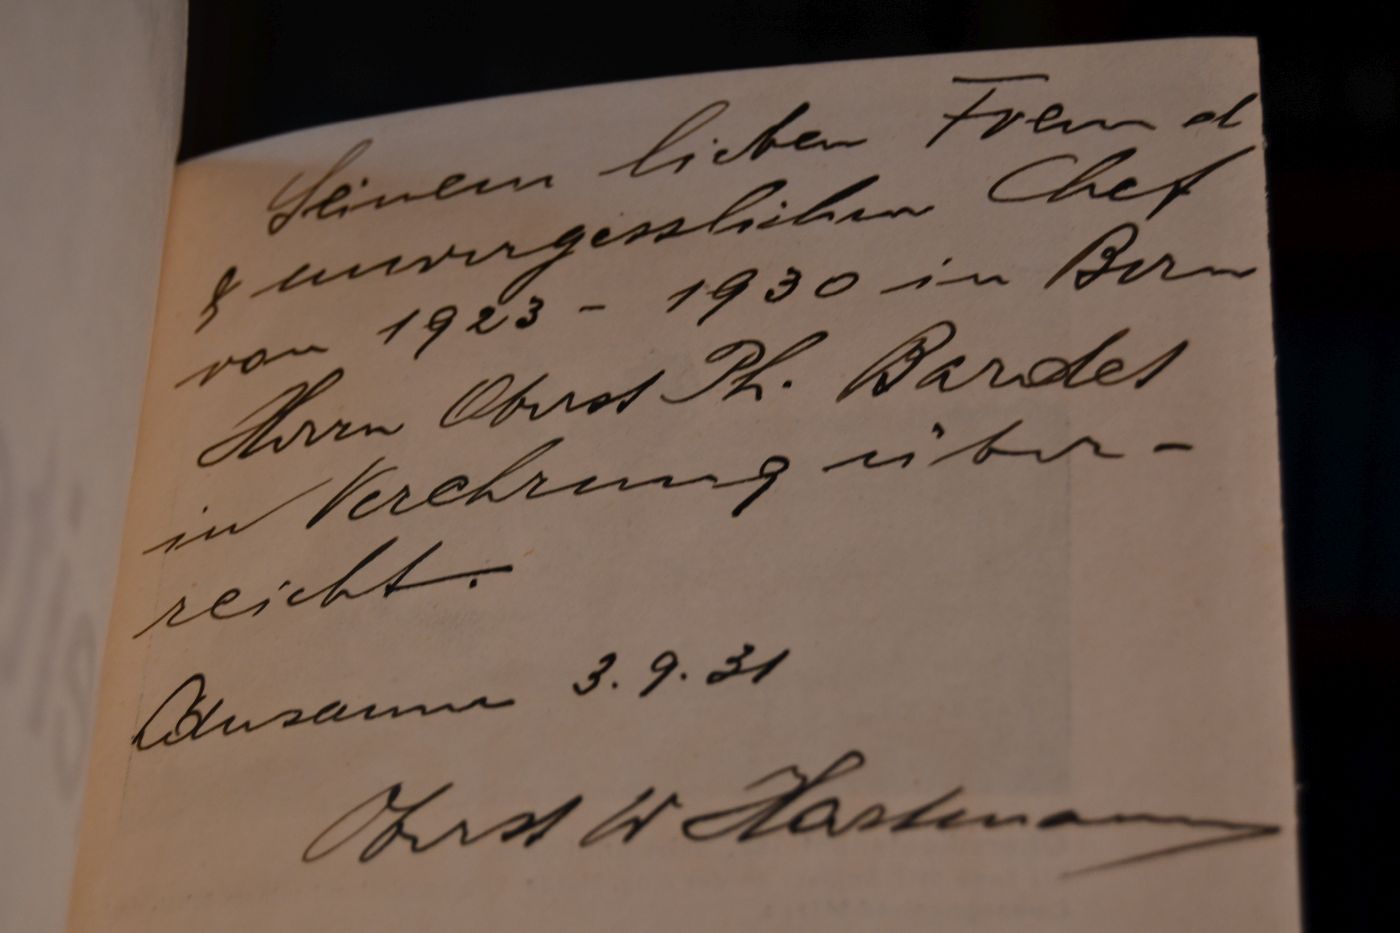 Seinem lieben Freund
& unvergesslichen Chef
von 1923 - 1930 in Bern
Herrn Oberst Ph. Bardet
in Verehrung über-
reicht.
Lausanne 3.9.31
Oberst W Hartmann